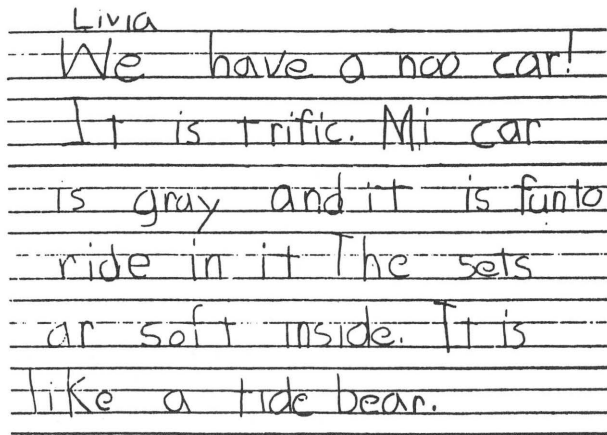 Livia
We have a noo car!
It is trific. Mi car
is gray and it is funto
ride in it The sets
ar soft inside. It is
like a tide bear.